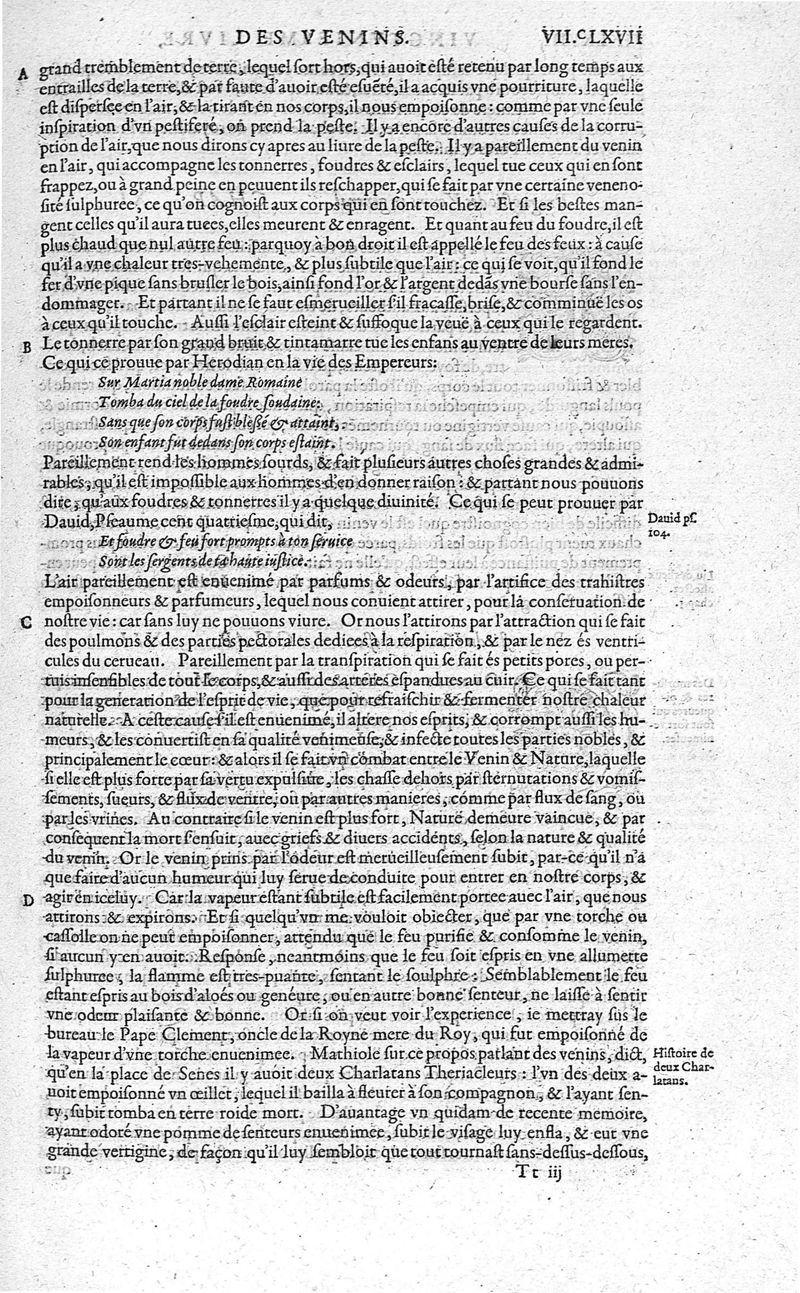 DES VENINS. VII.CLXVII
A grand tremblement de terre, lequel sort hors, qui auoit esté retenu par long temps aux
entrailles de la terre, & par faute d'auoir esté esuẽté, il a acquis vne pourriture, laquelle
est dispersee en l'air, & la tirant en nos corps, il nous empoisonne: comme par vne seule
inspiration d'vn pestiferé, on prend la peste. Il y a encore d'autres causes de la corru-
ption de l'air, que nous dirons cy apres au liure de la peste. Il y a pareillement du venin
en l'air, qui accompagne les tonnerres, foudres & esclairs, lequel tue ceux qui en sont
frappez, ou à grand peine en peuuent ils reschapper, qui se fait par vne certaine veneno-
sité sulphuree, ce qu'on cognoist aux corps qui en sont touchez. Et si les bestes man-
gent celles qu'il aura tuees, elles meurent & enragent. Et quant au feu du foudre, il est
plus chaud que nul autre feu: parquoy à bon droit il est appellé le feu des feux: à cause
qu'il a vne chaleur tres-vehemente, & plus subtile que l'air: ce qui se voit, qu'il fond le
fer d'vne pique sans brusler le bois, ainsi fond l'or & l'argent dedãs vne bourse sans l'en-
dommager. Et partant il ne se faut esmerueiller s'il fracasse, brise, & comminue les os
à ceux qu'il touche. Aussi l'esclair esteint & suffoque la veuë à ceux qui le regardent.
B Le tonnerre par son grand bruit & tintamarre tue les enfans au ventre de leurs meres.
Ce qui ce prouue par Herodian en la vie des Empereurs:
Sur Martia noble dame Romaine
Tomba du ciel de la foudre soudaine:
Sans que son corps fust blessé & attaint,
Son enfant fut dedans son corps estaint.
Pareillement rend les hommes sourds, & fait plusieurs autres choses grandes & admi-
rables, qu'il est impossible aux hommes d'en donner raison: & partant nous pouuons
dire, qu'aux foudres & tonnerres il y a quelque diuinité. Ce qui se peut prouuer par
Dauid, Pseaume cent quatriesme, qui dit,
Dauid ps.
104.
Et foudre & feu fort prompts à ton seruice
Sont les sergents de ta haute iustice.
L'air pareillement est enuenimé par parfums & odeurs, par l'artifice des trahistres
empoisonneurs & parfumeurs, lequel nous conuient attirer, pour la conseruation de
C nostre vie: car sans luy ne pouuons viure. Or nous l'attirons par l'attraction qui se fait
des poulmons & des parties pectorales dediees à la respiration, & par le nez és ventri-
cules du cerueau. Pareillement par la transpiration qui se fait és petits pores, ou per-
tuis insensibles de tout le corps, & aussi des arteres espandues au cuir. Ce qui se fait tant
pour la generation de l'esprit de vie, que pour refraischir & fermenter nostre chaleur
naturelle. A ceste cause s'il est enuenimé, il altere nos esprits, & corrompt aussi les hu-
meurs, & les conuertist en sa qualité venimeuse, & infecte toutes les parties nobles, &
principalement le cœur: & alors il se fait vn combat entre le Venin & Nature, laquelle
si elle est plus forte par sa vertu expulsiue, les chasse dehors par sternutations & vomis-
sements, sueurs, & flux de ventre, ou par autres manieres, comme par flux de sang, ou
par les vrines. Au contraire si le venin est plus fort, Nature demeure vaincue, & par
consequent la mort s'ensuit, auec griefs & diuers accidents, selon la nature & qualité
du venin. Or le venin prins par l'odeur est merueilleusement subit, par-ce qu'il n'a
que faire d'aucun humeur qui luy serue de conduite pour entrer en nostre corps, &
D agir en iceluy. Car la vapeur estant subtile est facilement portee auec l'air, que nous
attirons & expirons. Et si quelqu'vn me vouloit obiecter, que par vne torche ou
cassolle on ne peut empoisonner, attendu que le feu purifie & consomme le venin,
si aucun y en auoit. Response, neantmoins que le feu soit espris en vne allumette
sulphuree, la flamme est tres-puante, sentant le soulphre: Semblablement le feu
estant espris au bois d'aloës ou geneure, ou en autre bonne senteur, ne laisse à sentir
vne odeur plaisante & bonne. Or si on veut voir l'experience, ie mettray sus le
bureau le Pape Clement, oncle de la Royne mere du Roy, qui fut empoisonné de
la vapeur d'vne torche enuenimee. Mathiole sur ce propos parlant des venins, dict,
Histoire de
deux Char-
latans.
qu'en la place de Senes il y auoit deux Charlatans Theriacleurs: l'vn des deux a-
uoit empoisonné vn œillet, lequel il bailla à fleurer à son compagnon, & l'ayant sen-
ty, subit tomba en terre roide mort. D'auantage vn quidam de recente memoire,
ayant odoré vne pomme de senteurs enuenimee, subit le visage luy enfla, & eut vne
grande vertigine, de façon qu'il luy sembloit que tout tournast sans-dessus-dessous,
Tt iij